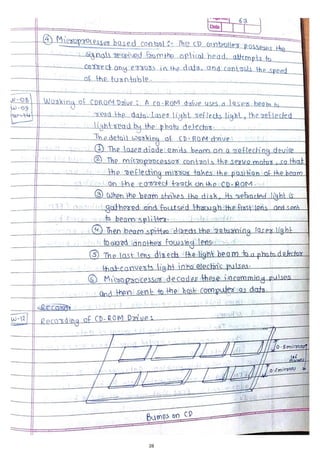 Date
57
④ Microprocessor based control :- The CD controller possesses the
signals received from the optical head, attempts to
correct any errors in the data, and controls the speed
of the turntable.
Working of CDROM Drive : A CD-ROM drive uses a laser beam to
read the data. Laser light reflects light, the reflected
light read by the photo detector
The detail working of CD-ROM drive
① The laser diode emits beam on a reflecting device
② The microprocessor controls the servo motor, so that
the reflecting mirror takes the position of the beam
on the correct track on the CD-ROM
③ When the beam strikes the disk, its refracted light is
gathered and focused through the first lens and sent
to beam splitter.
④ Then beam spitter directs the returning laser light
toward another focusing lens
⑤ The last lens directs the light beam to a photo detector
that converts light into electric pulses.
⑥ Microprocessor decodes these incomming pulses
and then sent to the host computer as data.
W-12
Recording of CD-ROM Drive :
0.5 micron
Bumps on CD
28